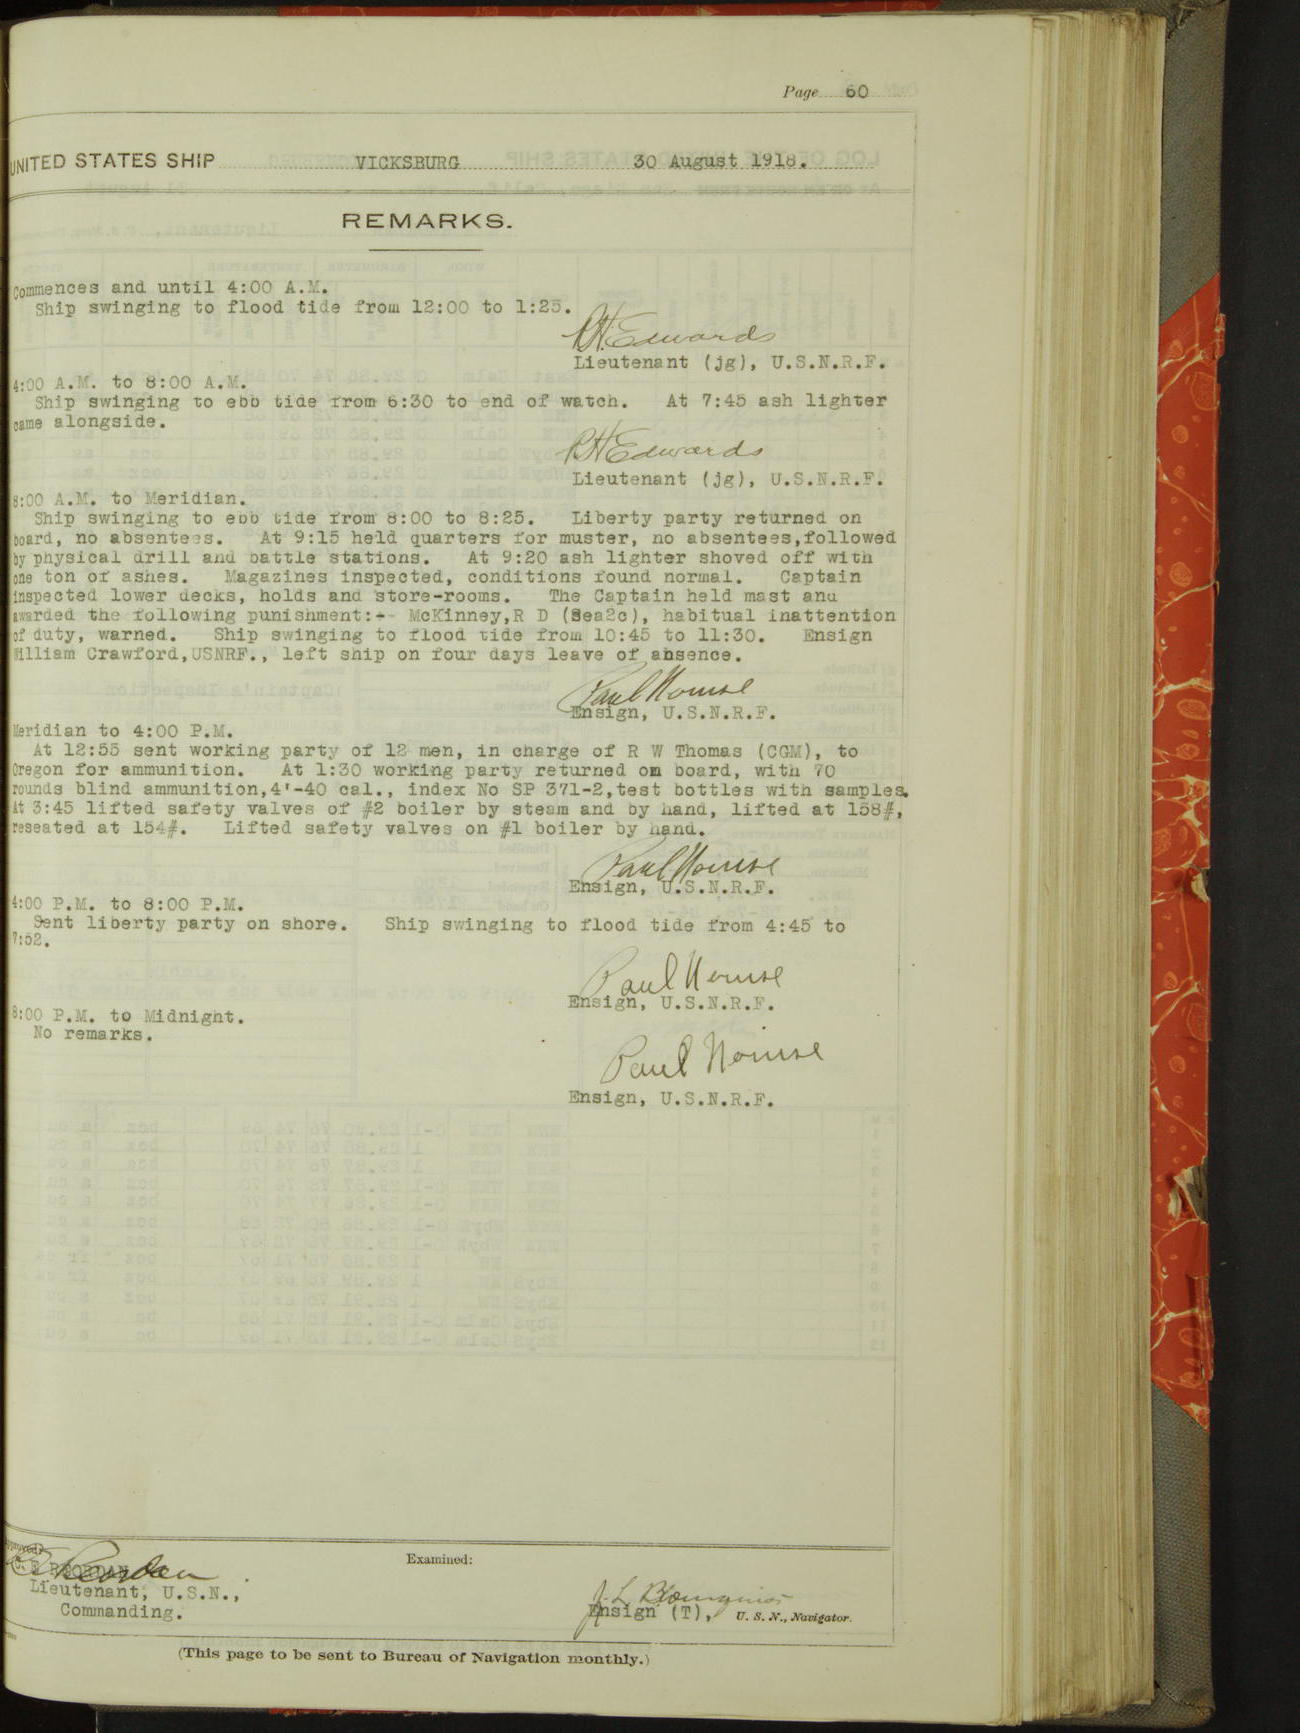 Page 60
UNITED STATES SHIP VICKSBURG 30 August 1918.
REMARKS.
Commences and until 4:00 A.M.
Ship swinging to flood tide from 12:00 to 1:25.
R H Edwards
Lieutenant (jg), U.S.N.R.F.
4:00 A.M. to 8:00 A.M.
Ship swinging to ebb tide from 6:30 to end of watch. At 7:45 ash lighter
came alongside.
R H Edwards
Lieutenant (jg), U.S.N.R.F.
8:00 A.M. to Meridian.
Ship swinging to ebb tide from 8:00 to 8:25. Liberty party returned on
board, no absentees. At 9:15 held quarters for muster, no absentees,followed
by physical drill and battle stations. At 9:20 ash lighter shoved off with
one ton of ashes. Magazines inspected, conditions found normal. Captain
inspected lower decks, holds and store-rooms. The Captain held mast and
awarded the following punishment:-- McKinney,R D (Sea2c), habitual inattention
of duty, warned. Ship swinging to flood tide from 10:45 to 11:30. Ensign
William Crawford,USNRF., left ship on four days leave of absence.
Paul
Ensign, U.S.N.R.F.
Meridian to 4:00 P.M.
At 12:55 sent working party of 12 men, in charge of R W Thomas (CGM), to
Oregon for ammunition. At 1:30 working party returned on board, with 70
rounds blind ammunition,4'-40 cal., index No SP 371-2,test bottles with samples.
At 3:45 lifted safety valves of #2 boiler by steam and by hand, lifted at 158#,
reseated at 154#. Lifted safety valves on #1 boiler by hand.
Paul
Ensign, U.S.N.R.F.
4:00 P.M. to 8:00 P.M.
Sent liberty party on shore. Ship swinging to flood tide from 4:45 to
7:52.
Paul
Ensign, U.S.N.R.F.
8:00 P.M. to Midnight.
No remarks.
Paul
Ensign, U.S.N.R.F.
Approved:
Examined:
Lieutenant, U.S.N.,
Commanding.
J. L.
Ensign (T), U. S. N., Navigator.
(This page to be sent to Bureau of Navigation monthly.)